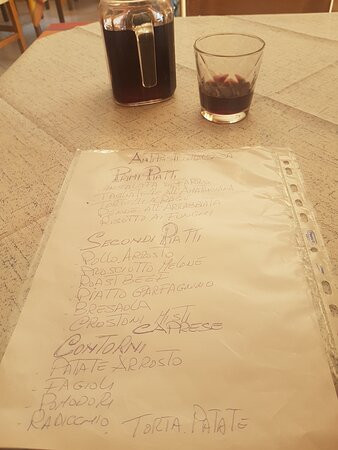 PRIMI PIATTI
RISOTTO AI FUNGHI
SECONDI PIATTI
POLLO ARROSTO
PROSCIUTTO MELONE
ROAST BEEF
PIATTO GARFAGNINO
BRESAOLA
CROSTONI MISTI
CAPRESE
CONTORNI
- PATATE ARROSTO
- FAGIOLI
- POMODORI
- RADICCHIO TORTA PATATE